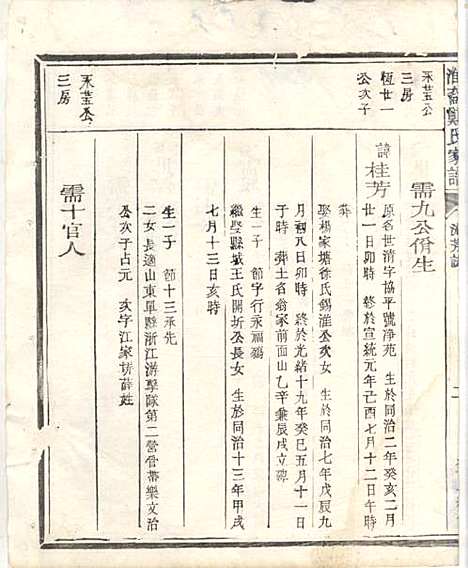 淮喬鄭氏家譜
永瑩公
三房
恆廿一
公次子
需九公偹生
諱桂芳
原名世清字協平號淨苑 生於同治二年癸亥二月
廿一日卯時 終於宣統元年己酉七月十二日午時
葬
娶楊家塘徐氏錫淮公次女 生於同治七年戊辰九
月初八日卯時 終於光緒十九年癸巳五月十一日
子時 葬土名翁家前面山乙辛兼辰戌立碑
生一子 節字行永福殤
繼娶縣城王氏開圻公長女 生於同治十三年甲戌
七月十三日亥時
生一子 節十三承先
二女長適山東單縣浙江游擊隊第二營管帶樂文治
公次子占元 次字江家塝薛姓
永瑩公
三房
需十官人